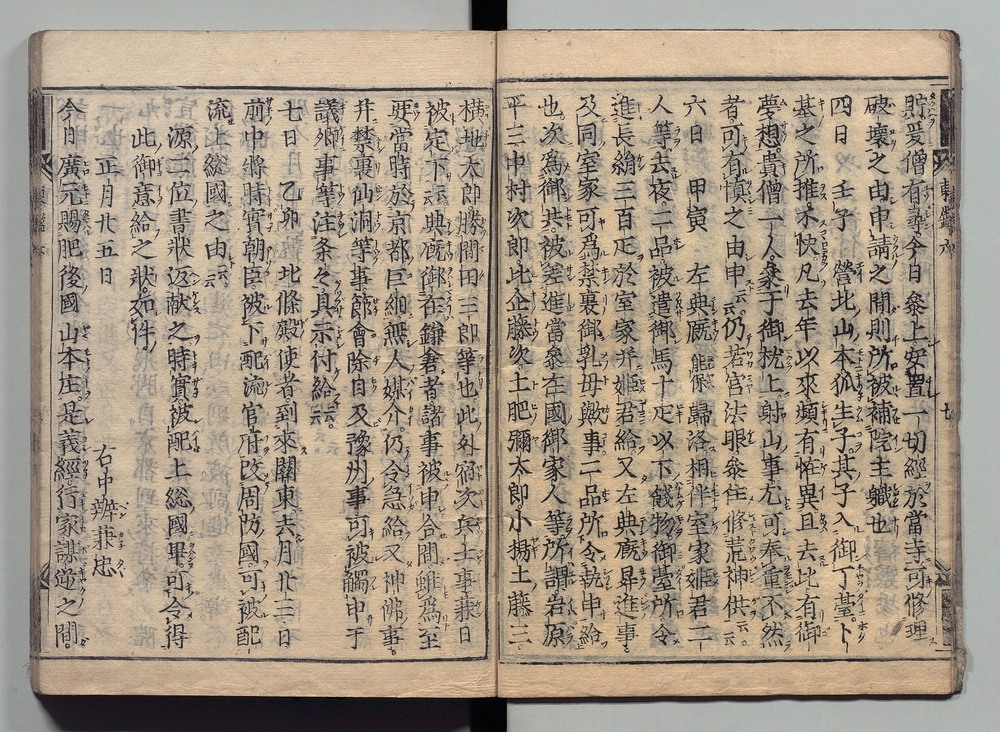 貯爰僧有尋今日參上安置一切經於當寺可修理
破壞之由申請之間則所被補院主軄也
四日　壬子　營北山本狐生子其子入御丁臺卜
筮之所推不快凡去年以來頻有恠異且去比有御
夢想貴僧一人參于御枕上射山事尤可奉重不然
者可有慎之由申云云仍若宮法眼參住修荒神供云云
六日　甲寅　左典厩能保歸洛相伴室家姫君二
人等去夜二品被遣御馬十疋以下餞物御臺所令
進長絹三百疋於室家并姫君給又左典厩昇進事
及同室家可爲禁裏御乳母歟事二品所令執申給
也次爲御共被差進當參在國御家人等所謂岩原
平三中村次郎比企藤次土肥彌太郎小揚土藤三
横地太郎勝間田三郎等也此外宿次兵士事兼日
被定下云云典厩御在鎌倉者諸事被申合間雖爲至
要當時於京都巨細無人媒介仍令急給又神佛事
并禁裏仙洞等事節會除目及豫州事可被觸申于
議卿事等注条々具示付給云云
七日　乙卯　北條殿使者到來關東去月廿三日
前中將時實朝臣被下配流官府改周防國可被配
流上総國之由云云
源二位書狀返献之時實被配上総國畢可令得
此御意給之狀如件
正月廿五日
右中辨兼忠
今日廣元賜肥後國山本庄是義經行家謀逆之間
東鑑六
七